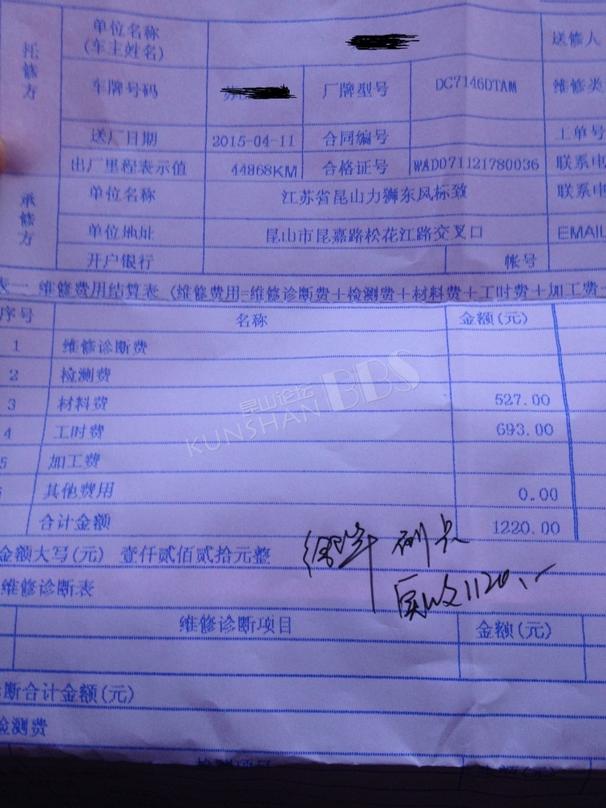 托修方
单位名称(车主姓名) 送修人
车牌号码 厂牌型号 DC7146DTAM 维修类
送厂日期 2015-04-11 合同编号 工单号
出厂里程表示值 44868KM 合格证号 WAD071121780036 联系电
承修方
单位名称 江苏省昆山力狮东风标致 联系电
单位地址 昆山市昆嘉路松花江路交叉口 EMAIL
开户银行 帐号
表一 维修费用结算表(维修费用=维修诊断费+检测费+材料费+工时费+加工费+
序号 名称 金额(元)
1 维修诊断费
2 检测费
3 材料费 527.00
4 工时费 693.00
5 加工费
其他费用 0.00
合计金额 1220.00
金额大写(元) 壹仟贰佰贰拾元整
实收1120.-
维修诊断表
维修诊断项目 金额(元)
诊断合计金额(元)
检测费
昆山论坛
KUNSHAN BBS